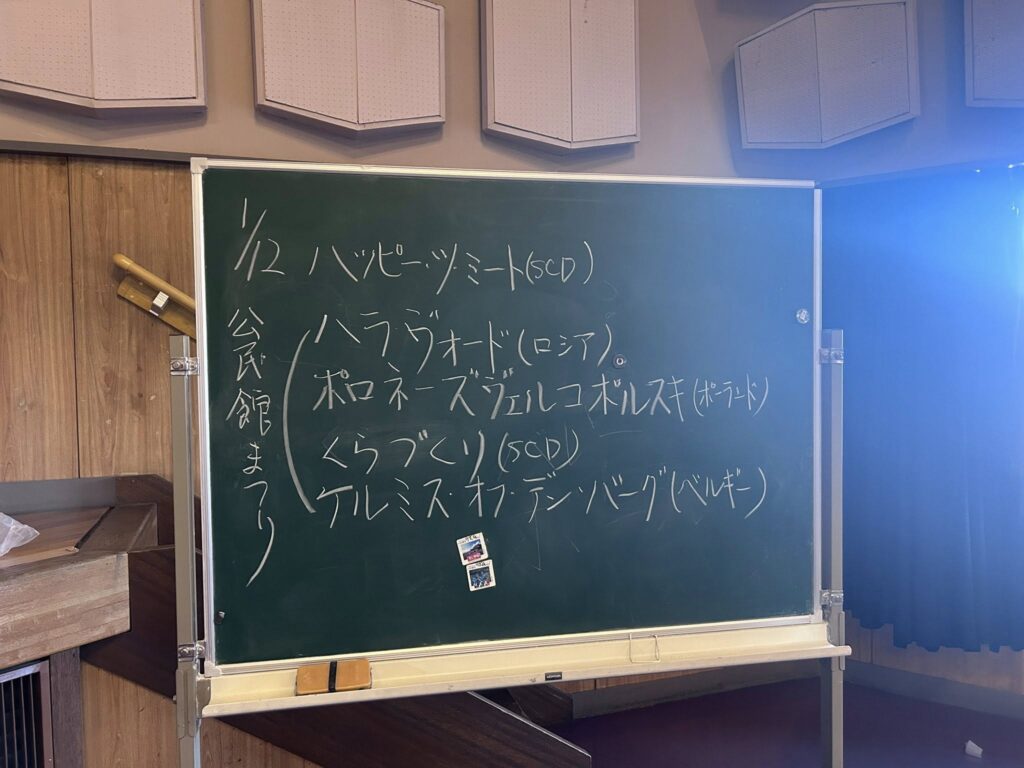 1/12 ハッピー・ツ・ミート(SCD)
公民館まつり
ハラ・ヴォード(ロシア)
ポロネーズヴェルコポルスキ(ポーランド)
くらづくり(SCD)
ケルミス・オブ・デンバーグ(ベルギー)